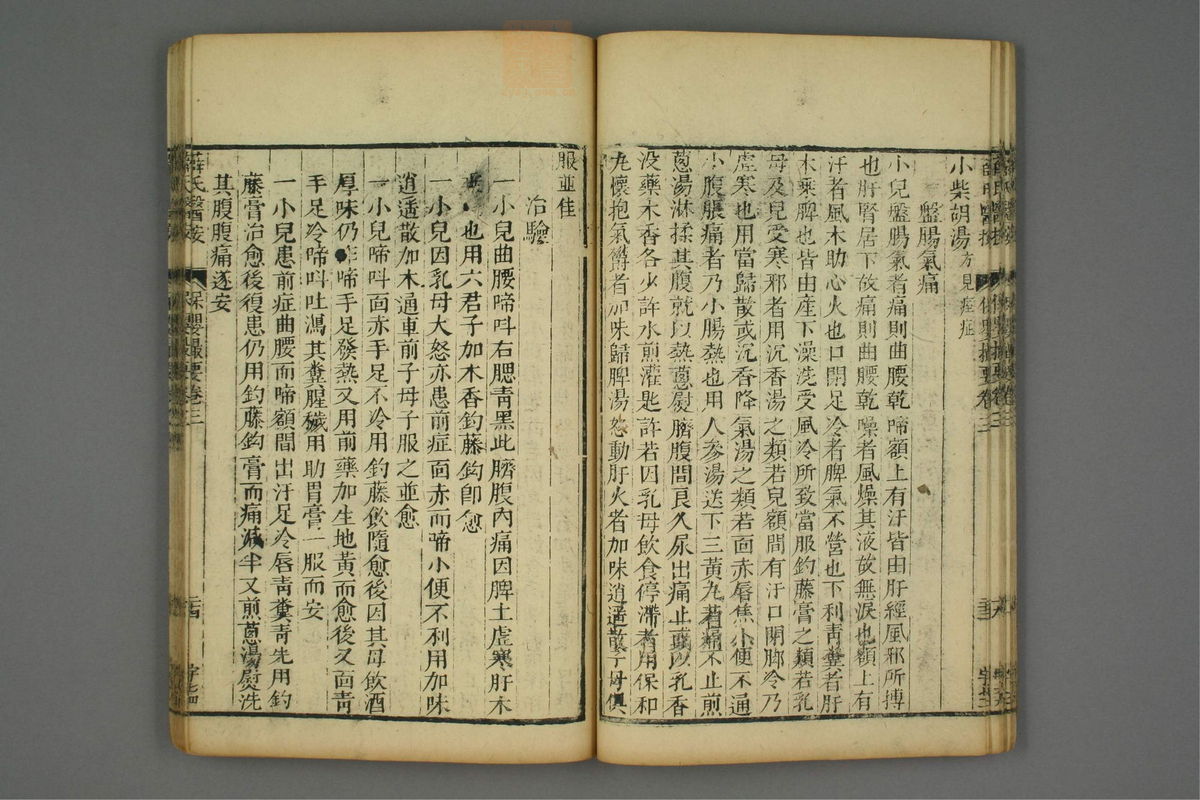 小柴胡湯方見痙症
盤腸氣痛
小兒盤腸氣者痛則曲腰乾啼額上有汗皆由肝經風邪所搏
也肝腎居下故痛則曲腰乾啼者風燥其液故無淚也額上有
汗者風木助心火也口閉足冷者脾氣不營也下利青糞者肝
木乘脾也皆由產下澡洗受風冷所致當服鈎藤膏之類若乳
母及兒受寒邪者用沉香湯之類若兒額間有汗口閉脚冷乃
虛寒也用當歸散或沉香降氣湯之類若面赤唇焦小便不通
小腹脹痛者乃小腸熱也用人參湯送下三黃丸若痛不止煎
蔥湯淋揉其腹就以熱蔥熨臍腹間良久尿出痛止或以乳香
沒藥木香各少許水煎灌匙許若因乳母飲食停滯者用保和
丸懷抱氣鬱者加味歸脾湯怒動肝火者加味逍遙散子母俱
服並佳
治驗
一小兒曲腰啼呌右腮青黑此臍腹內痛因脾土虛寒肝木
也用六君子加木香鈎藤鈎卽愈
一小兒因乳母大怒亦患前症面赤而啼小便不利用加味
逍遙散加木通車前子母子服之並愈
一小兒啼呌面赤手足不冷用鈎藤飲隨愈後因其母飲酒
厚味仍作啼手足發熱又用前藥加生地黃而愈後又面青
手足冷啼呌吐瀉其糞腥穢用助胃膏一服而安
一小兒患前症曲腰而啼額間出汗足冷唇青糞青先用鈎
藤膏治愈後復患仍用鈎藤鈎膏而痛減半又煎蔥湯熨洗
其腹腹痛遂安
薛氏醫按
保嬰撮要卷三